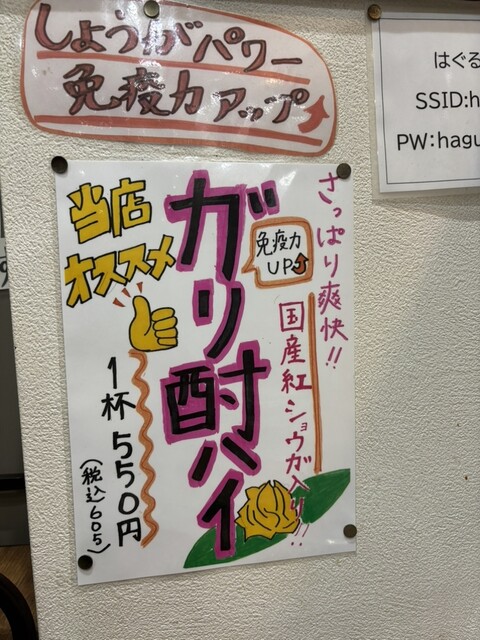 しょうがパワー
免疫力アップ
はぐる
SSID:h
PW:hagu
さっぱり爽快!!
国産紅ショウガ入り!!
免疫力
UP
ガリ酎ハイ
当店
オススメ
1杯550円
(税込605)